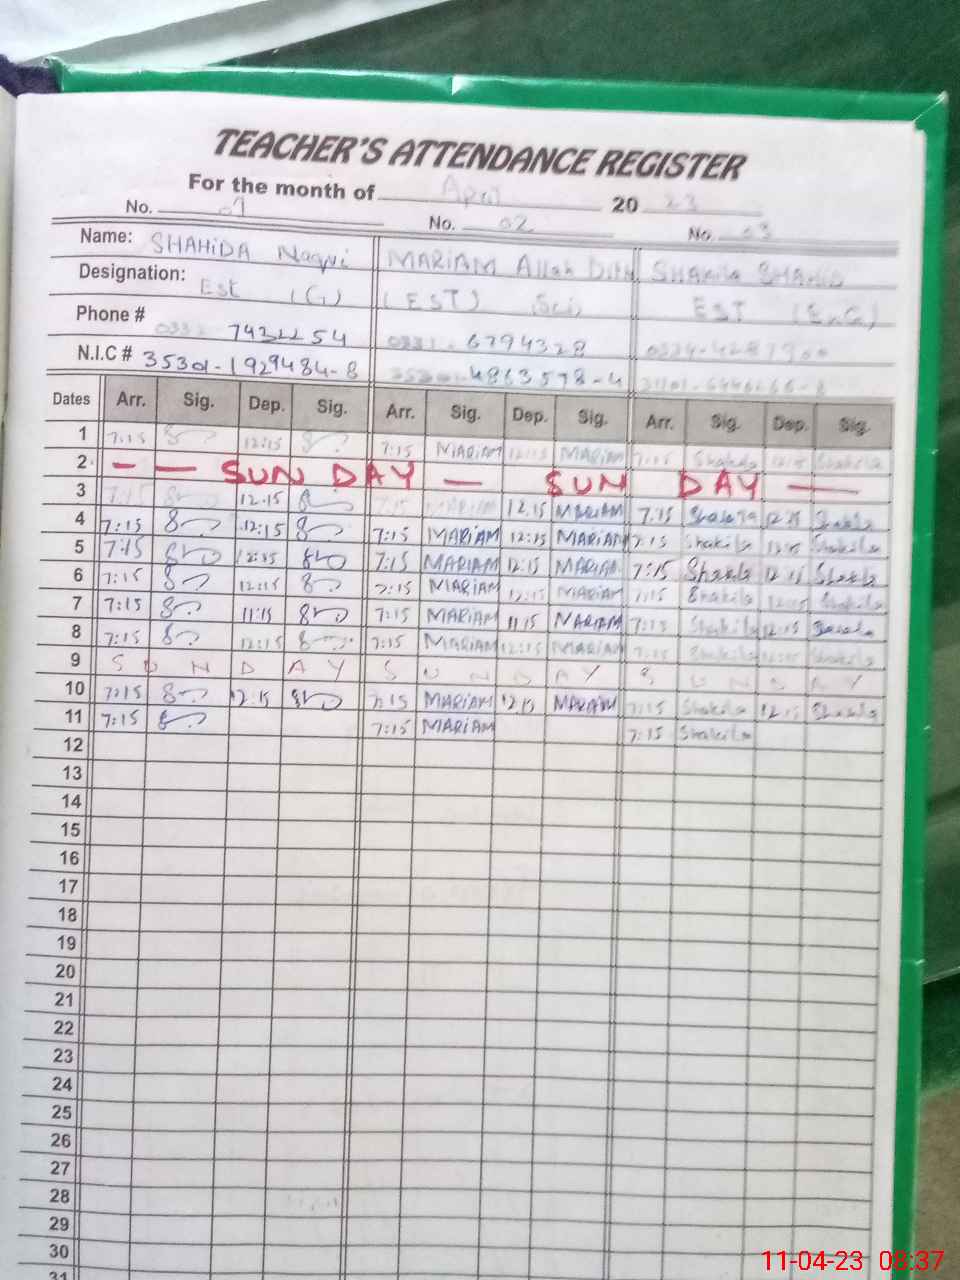 TEACHER'S ATTENDANCE REGISTER
For the month of April 20 23
No. 01 No. 02 No. 03
Name: SHAHiDA Naqvi MARiAM Allah Ditta SHAKila SHAHiD
Designation: Est (G) (EST) (Sci) EST (EnG)
Phone # 7431154 6794328
N.I.C # 35301-1929484-8 4863598-4
Dates Arr. Sig. Dep. Sig. Arr. Sig. Dep. Sig. Arr. Sig. Dep. Sig.
1 7:15 12:15 7:15 MARiAM 12:15 MARiAM 7:15 Shakila 12:15 Shakila
2 - — SUN DAY — SUN DAY —
3 7:15 12:15 7:15 MARiAM 12.15 MARiAM 7.15 Shakila 12:15 Shakila
4 7:15 12:15 7:15 MARiAM 12:15 MARiAM 7:15 Shakila 12:15 Shakila
5 7:15 12:15 7:15 MARiAM 12:15 MARiAM 7:15 Shakila 12:15 Shakila
6 7:15 12:15 7:15 MARiAM 12:15 MARiAM 7:15 Shakila 12:15 Shakila
7 7:15 11:15 7:15 MARiAM 11:15 MARiAM 7:15 Shakila 12:15 Shakila
8 7:15 12:15 7:15 MARiAM 12:15 MARiAM 7:15 Shakila 12:15 Shakila
9 S U N D A Y S U N D A Y S U N D A Y
10 7:15 12:15 7:15 MARiAM 12:15 MARiAM 7:15 Shakila 12:15 Shakila
11 7:15 7:15 MARiAM 7:15 Shakila
12
13
14
15
16
17
18
19
20
21
22
23
24
25
26
27
28
29
30
31
11-04-23 08:37